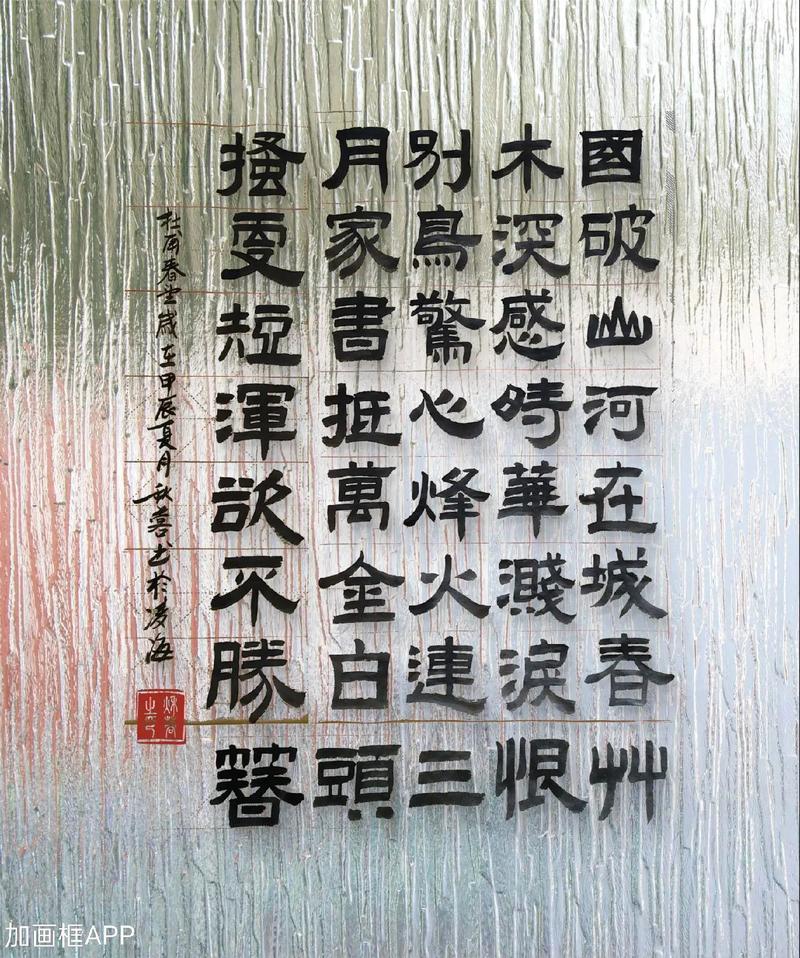 國破山河在城春艸
木深感時華濺淚恨
別鳥驚心烽火連三
月家書抵萬金白頭
搔更短渾欲不勝簪
杜甫春望歲在甲辰夏月秋喜书於凌海
加画框APP